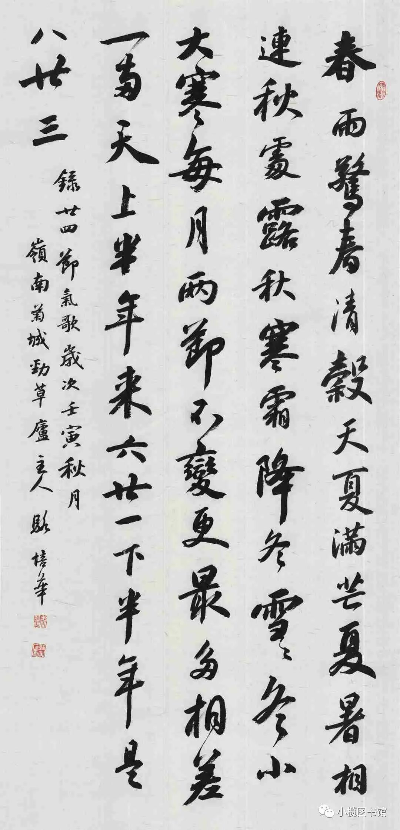 春雨驚春清穀天夏滿芒夏暑相
連秋處露秋寒霜降冬雪〻冬小
大寒每月两節不變更最多相差
一两天上半年来六廿一下半年是
八廿三
錄廿四節氣歌歲次壬寅秋月
嶺南菊城勁草廬主人 培華
小榄图书馆